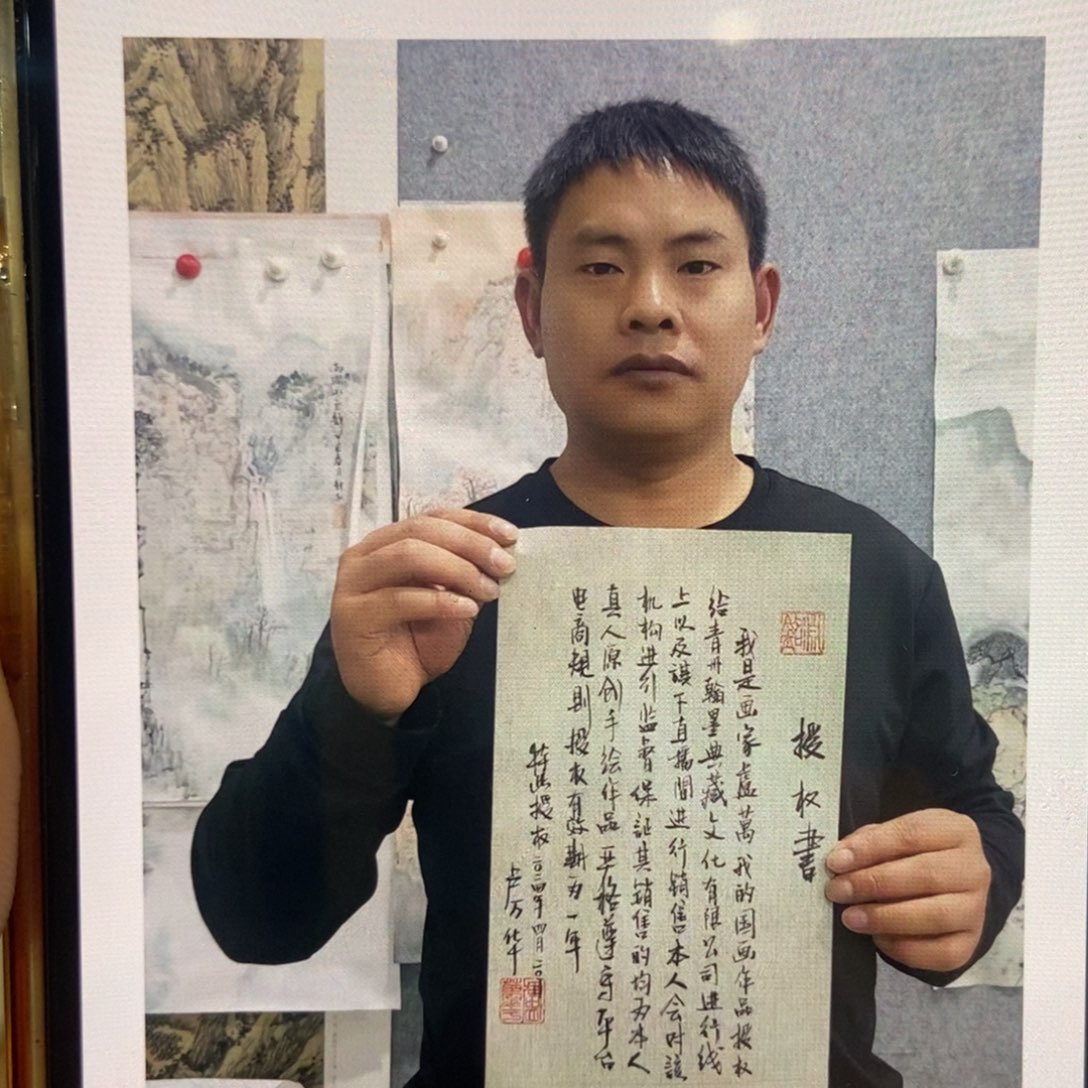 授权书
我是画家卢万 我的国画作品授权
给青州翰墨典藏文化有限公司进行线
上以及旗下直播间进行销售本人会对该
机构进行监督保证其销售的均为本人
真人原创手绘作品严格遵守平台
电商规则授权有效期为一年
特此授权 二〇二四年四月二〇
卢万华